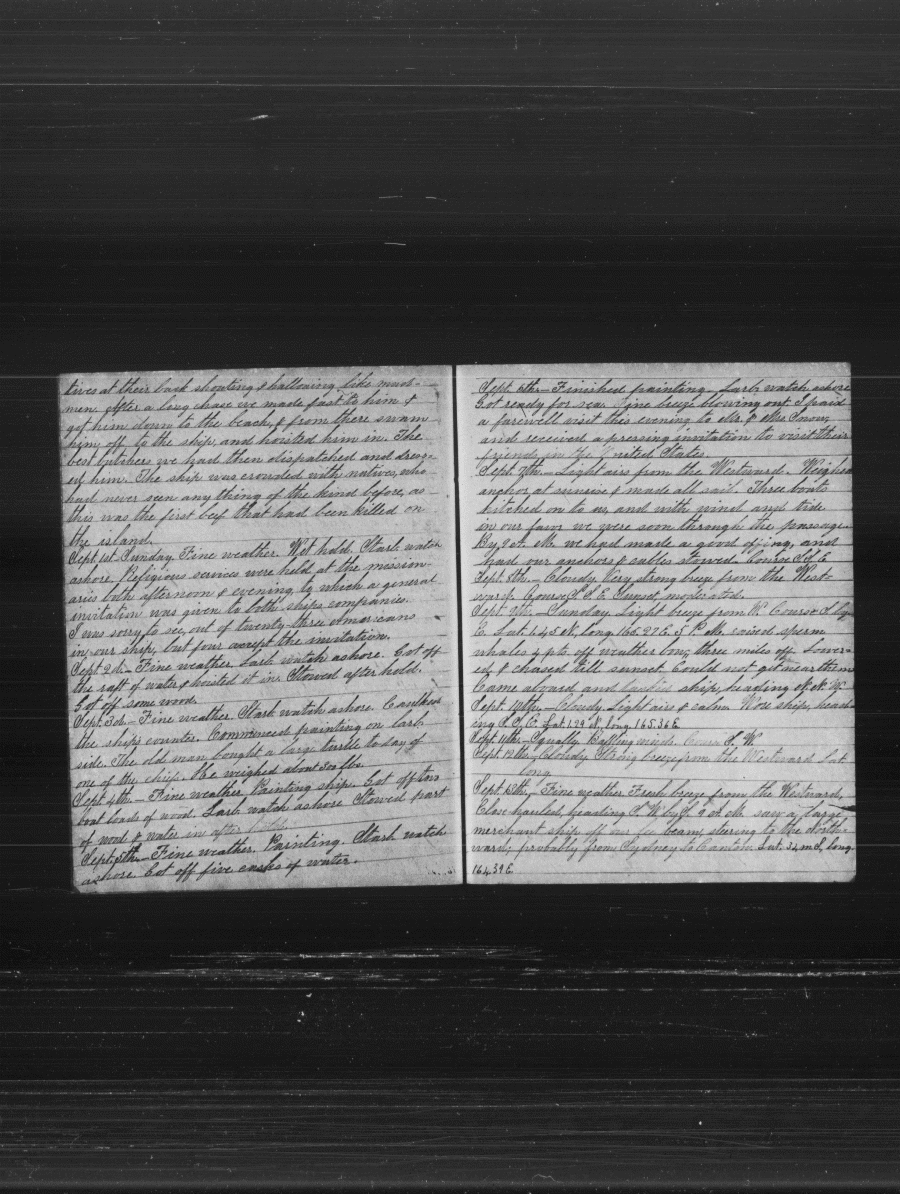 tives at their back shouting & hallooing like mad-
men. After a long chase we made fast to him &
got him down to the beach, & from there swam
him off to the ship, and hoisted him in. The
best butchers we had then dispatched and dress-
ed him. The ship was crowded with natives, who
had never seen any thing of the kind before, as
this was the first beef that had been killed on
the island.
Sept 1st Sunday. Fine weather. Wet hold. Starb. watch
ashore. Religious services were held at the mission-
aries both afternoon & evening, to which a general
invitation was given to both ships companies.
I was sorry to see, out of twenty-three Americans
in our ship, but four accept the invitation.
Sept 2d. Fine weather. Larb. watch ashore. Got off
the raft of water & hoisted it in. Stowed after hold.
Got off some wood.
Sept. 3d.- Fine weather. Starb watch ashore. Caulked
the ship's counter. Commenced painting on larb.
side. The old man bought a large turtle to day of
one of the chiefs. He weighed about 300 lbs.
Sept 4th. - Fine weather. Painting ship. Got off two
boat loads of wood. Larb. watch ashore Stowed part
of wood & water in after
Sept. 5th.- Fine weather. Painting. Starb. watch
ashore. Got off five casks of water.
Sept. 6th.- Finished painting. Larb. watch ashore
Got ready for sea. Fine breeze blowing out. I paid
a farewell visit this evening to Mr. & Mrs Snow,
and received a pressing invitation to visit their
friends in the United States.
Sept. 7th.- Light airs from the Westward. Weighed
anchor at sunrise & made all sail. Three boats
hitched on to us, and with wind and tide
in our favor we were soon through the passage.
By 9 A. M. we had made a good offing, and
had our anchors & cables stowed. Course S. by E.
Sept. 8th.- Cloudy. Very strong breeze from the West-
ward. Course S. S. E. Sunset, moderated.
Sept. 9th.- Sunday. Light breeze from W. Course S. by
E. Lat. 1.45 N, long 165.27 E. 5 P. M. raised sperm
whales 4 pts. off weather bow, three miles off. Lower-
ed, & chased till sunset. Could not get near them
Came aboard and tacked ship, heading N. N. W.
Sept. 10th.- Cloudy. Light airs & calm. Wore ship, head-
ing S. S. E. Lat 1.29 N. long. 165.36 E.
Sept 11th.- Squally. Baffling winds. Course S. W.
Sept. 12th.- Cloudy. Strong breeze from the Westward Lat
long
Sept 13th.- Fine weather. Fresh breeze from the Westward,
Close hauled, heading S. W. by S. 9 A. M. saw a large
merchant ship off our lee beam, steering to the north-
ward; probably from Sydney to Canton. Lat. 34 m S, long.
164.39 E.